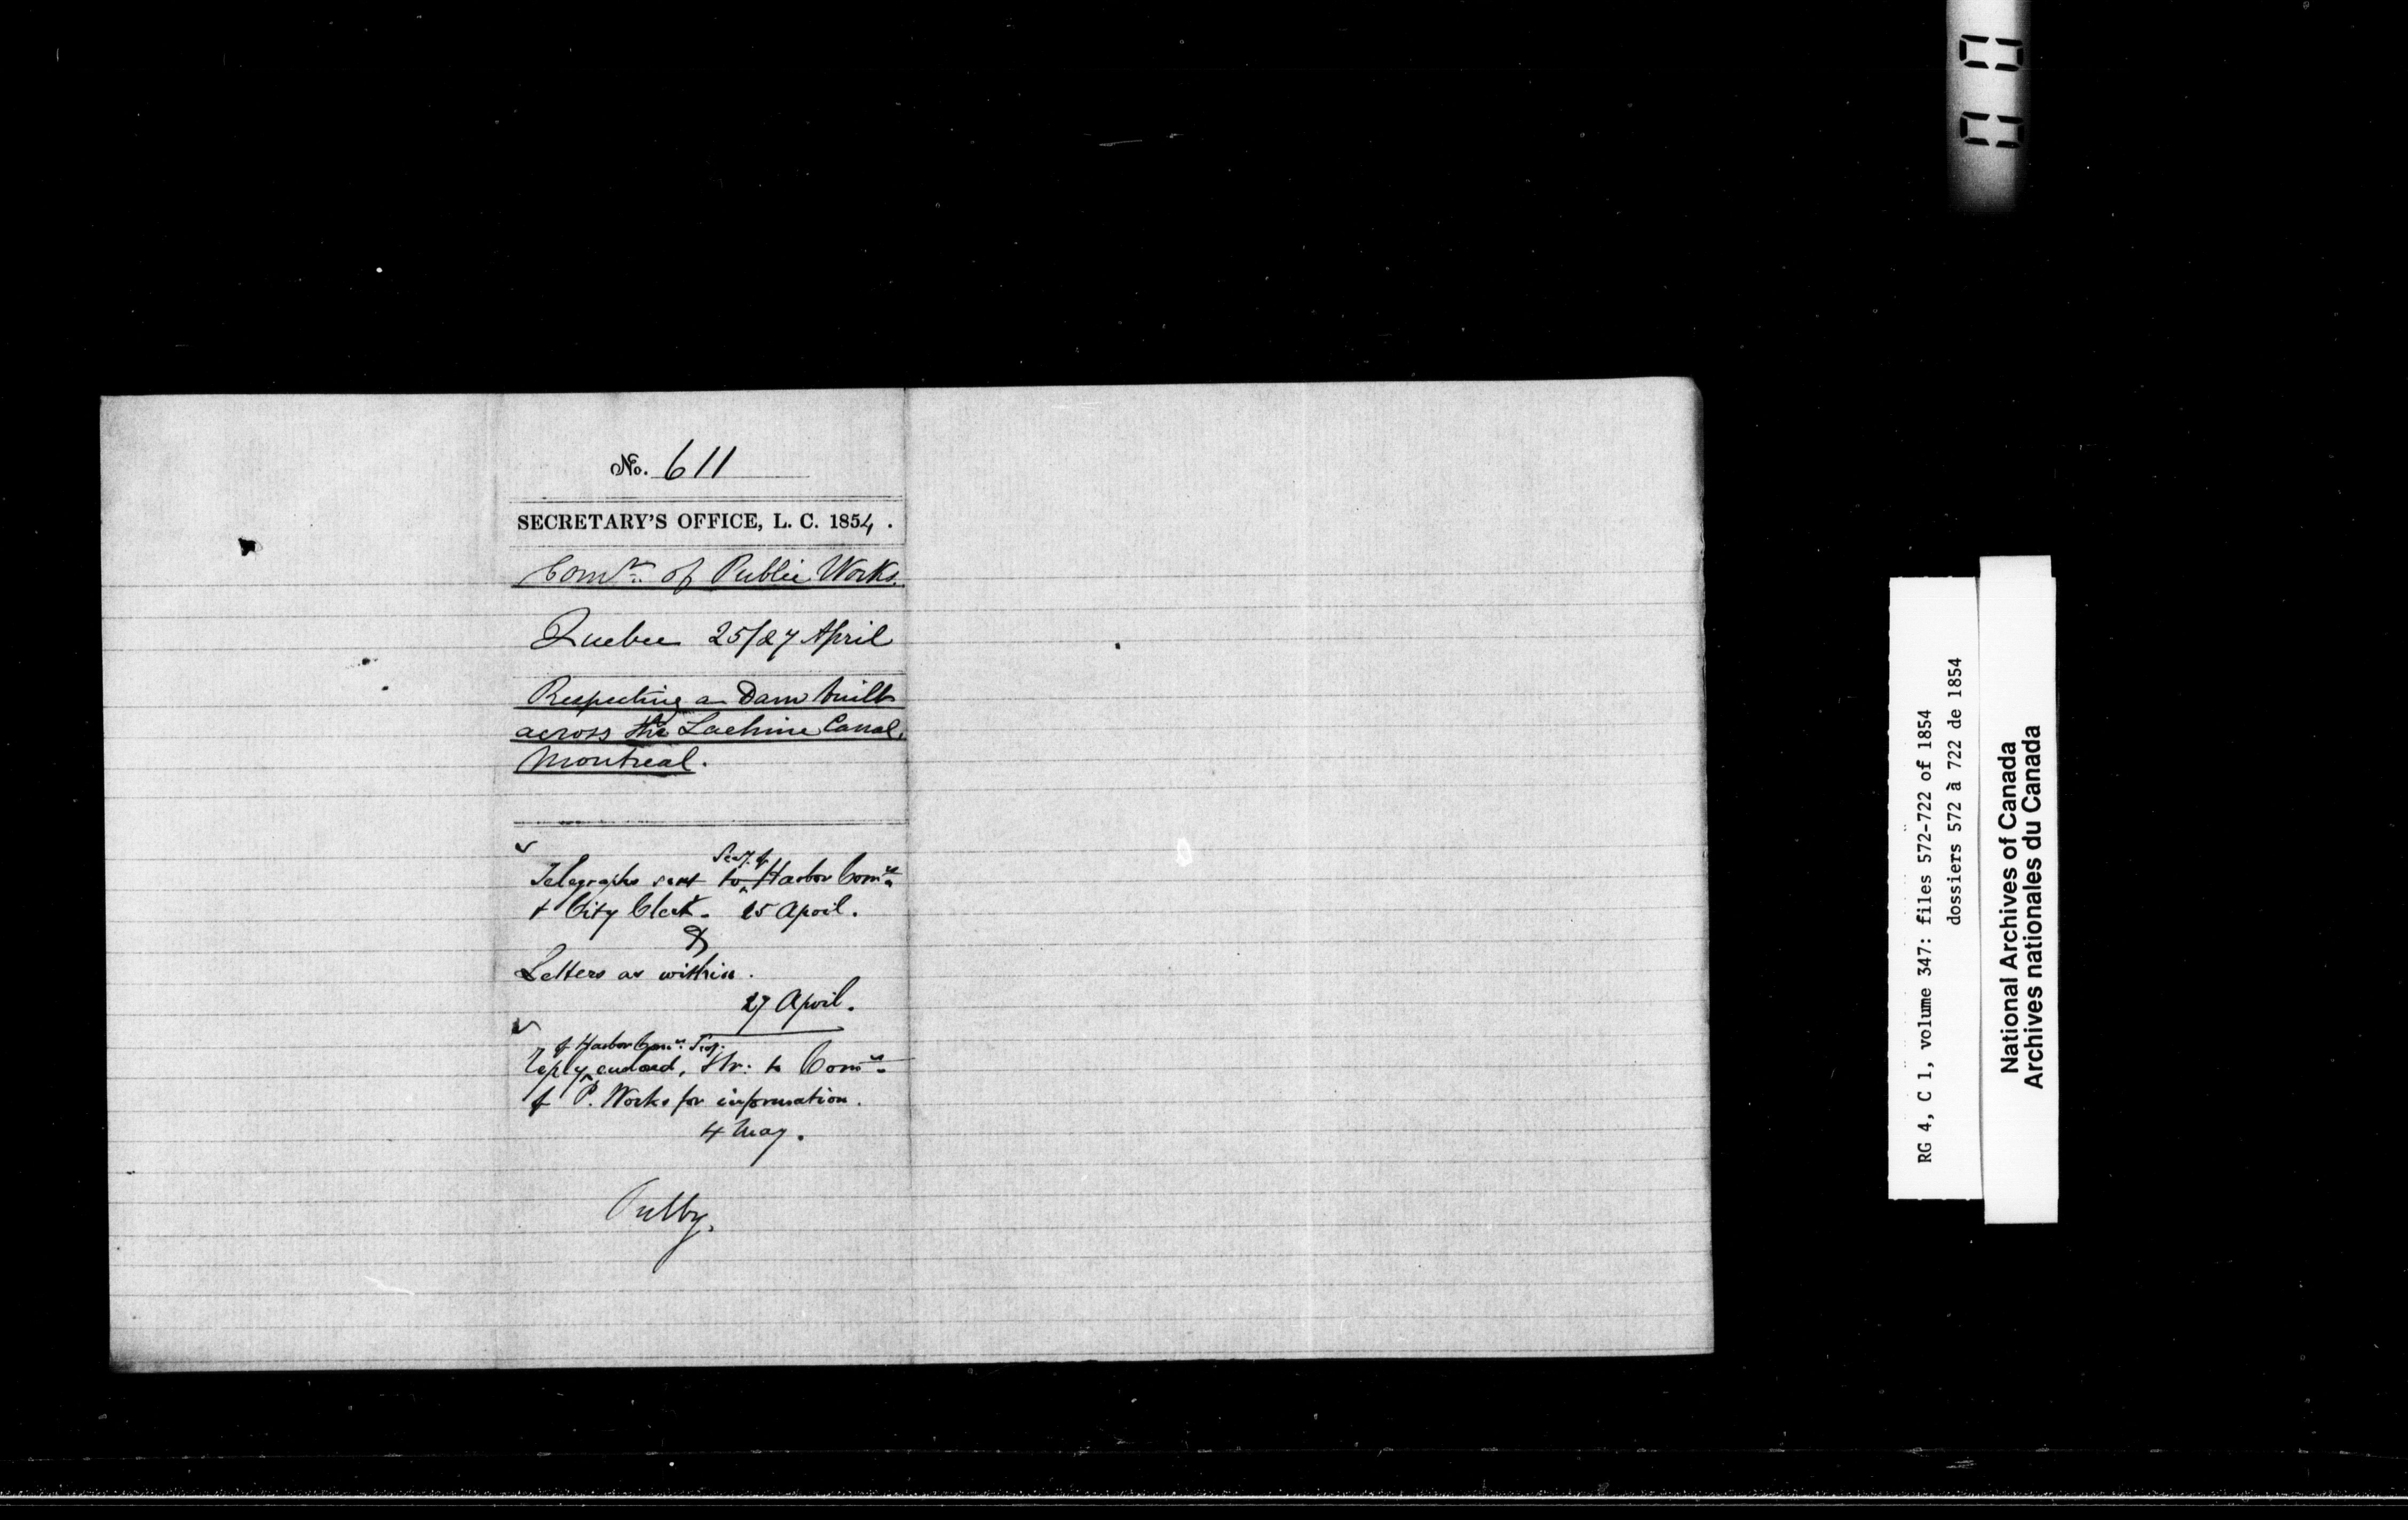 No. 611
SECRETARY'S OFFICE, L. C. 1854.
Comrs. of Public Works.
Quebec 25/27 April
Respecting a Dam built
across the Lachine Canal,
Montreal.
Secy. of
Telegraphs sent to Harbor Comrs.
& City Clerk. 25 April.
&
Letters as within.
27 April.
of Harbor Comrs. Secy.
Reply enclosed, tr: to Comrs.
of P. Works for information.
4 May.
RG 4, C 1, volume 347: files 572-722 of 1854
dossiers 572 à 722 de 1854
National Archives of Canada
Archives nationales du Canada